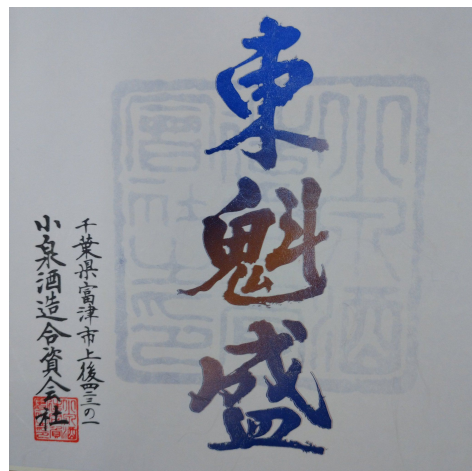 東魁盛
千葉県富津市上後四二三の一
小泉酒造合資会社